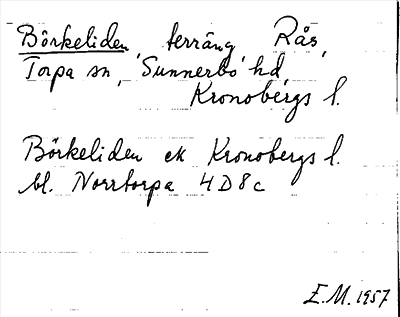 Börkeliden, terräng, Rås,
Torpa sn, Sunnerbo hd,
Kronobergs l.
Börkeliden ek Kronobergs l.
bl. Norrtorpa 4D8c
E.M. 1957